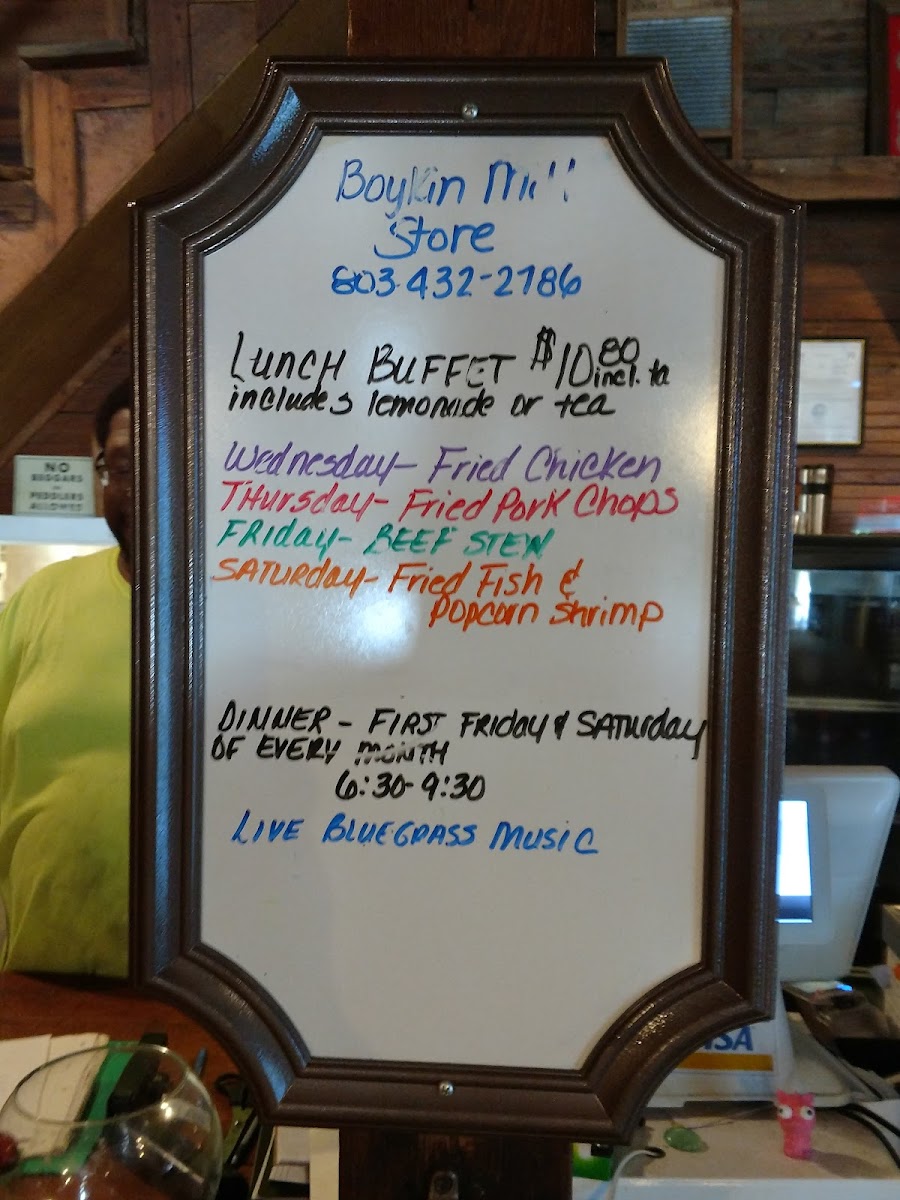 Boykin Mill
Store
803-432-2186
LUNCH BUFFET $10.80 incl. ta
includes lemonade or tea
Wednesday- Fried Chicken
THURSday- Fried Pork Chops
FRIday- BEEF STEW
SATURday- Fried Fish &
Popcorn Shrimp
DINNER - FIRST FRIday & SATURday
OF EVERY MONTH
6:30-9:30
LIVE BLUEGRASS MUSIC
NO
BEGGARS
or
PEDDLERS
ALLOWED
VISA